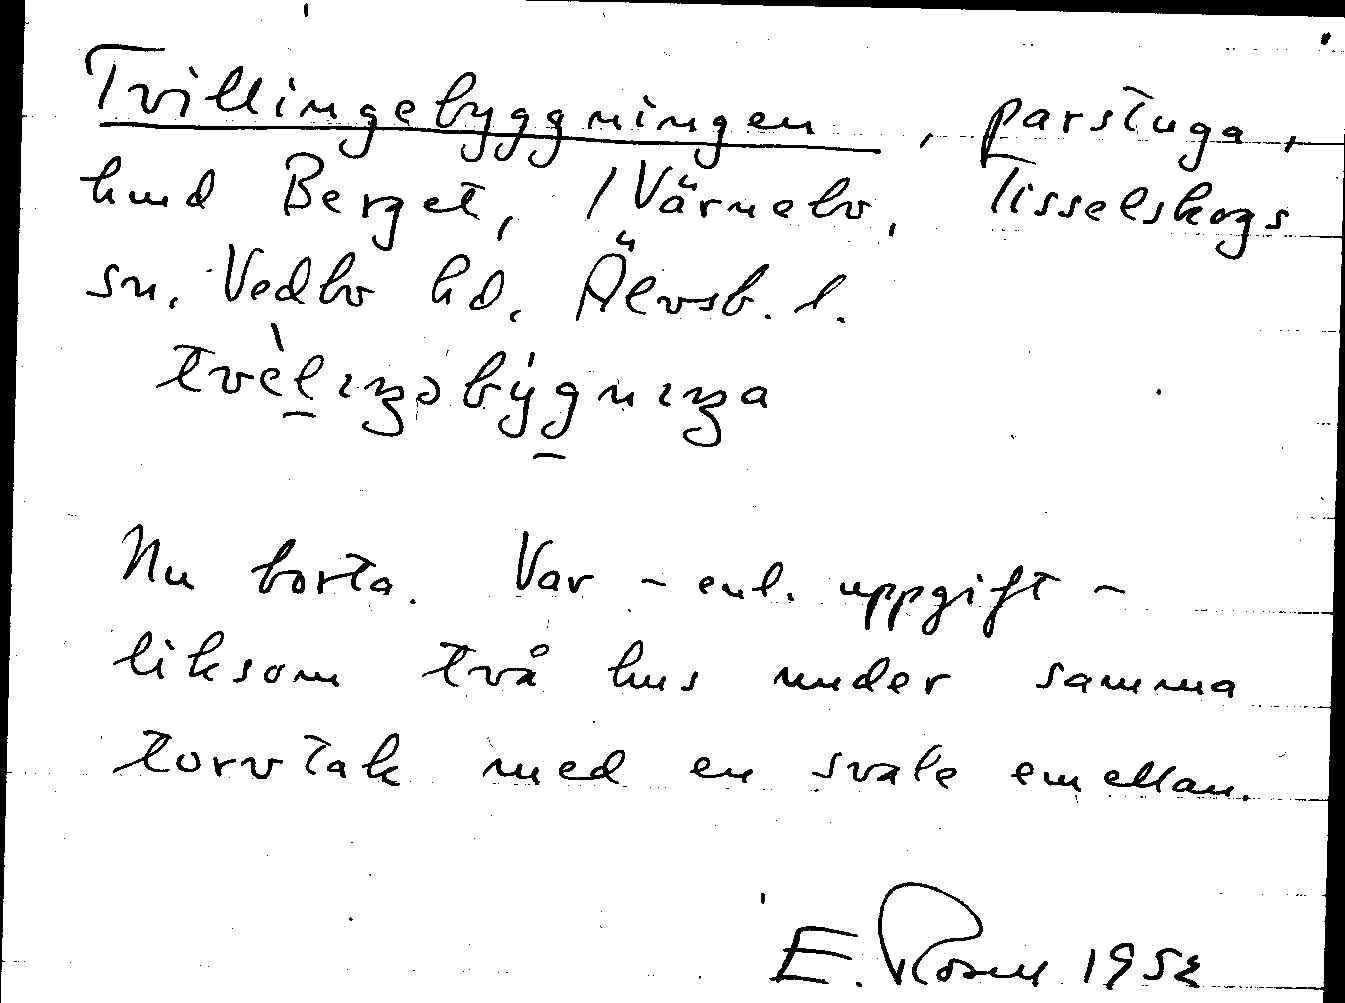 Tvillingebyggningen, parstuga,
hmd Berget, 1 Värnebo, Tisselskogs
sn, Vedbo hd, Älvsb. l.
Nu borta. Var – enl. uppgift –
liksom två hus under samma
torvtak med en svale emellan.
E. Rosell 1952